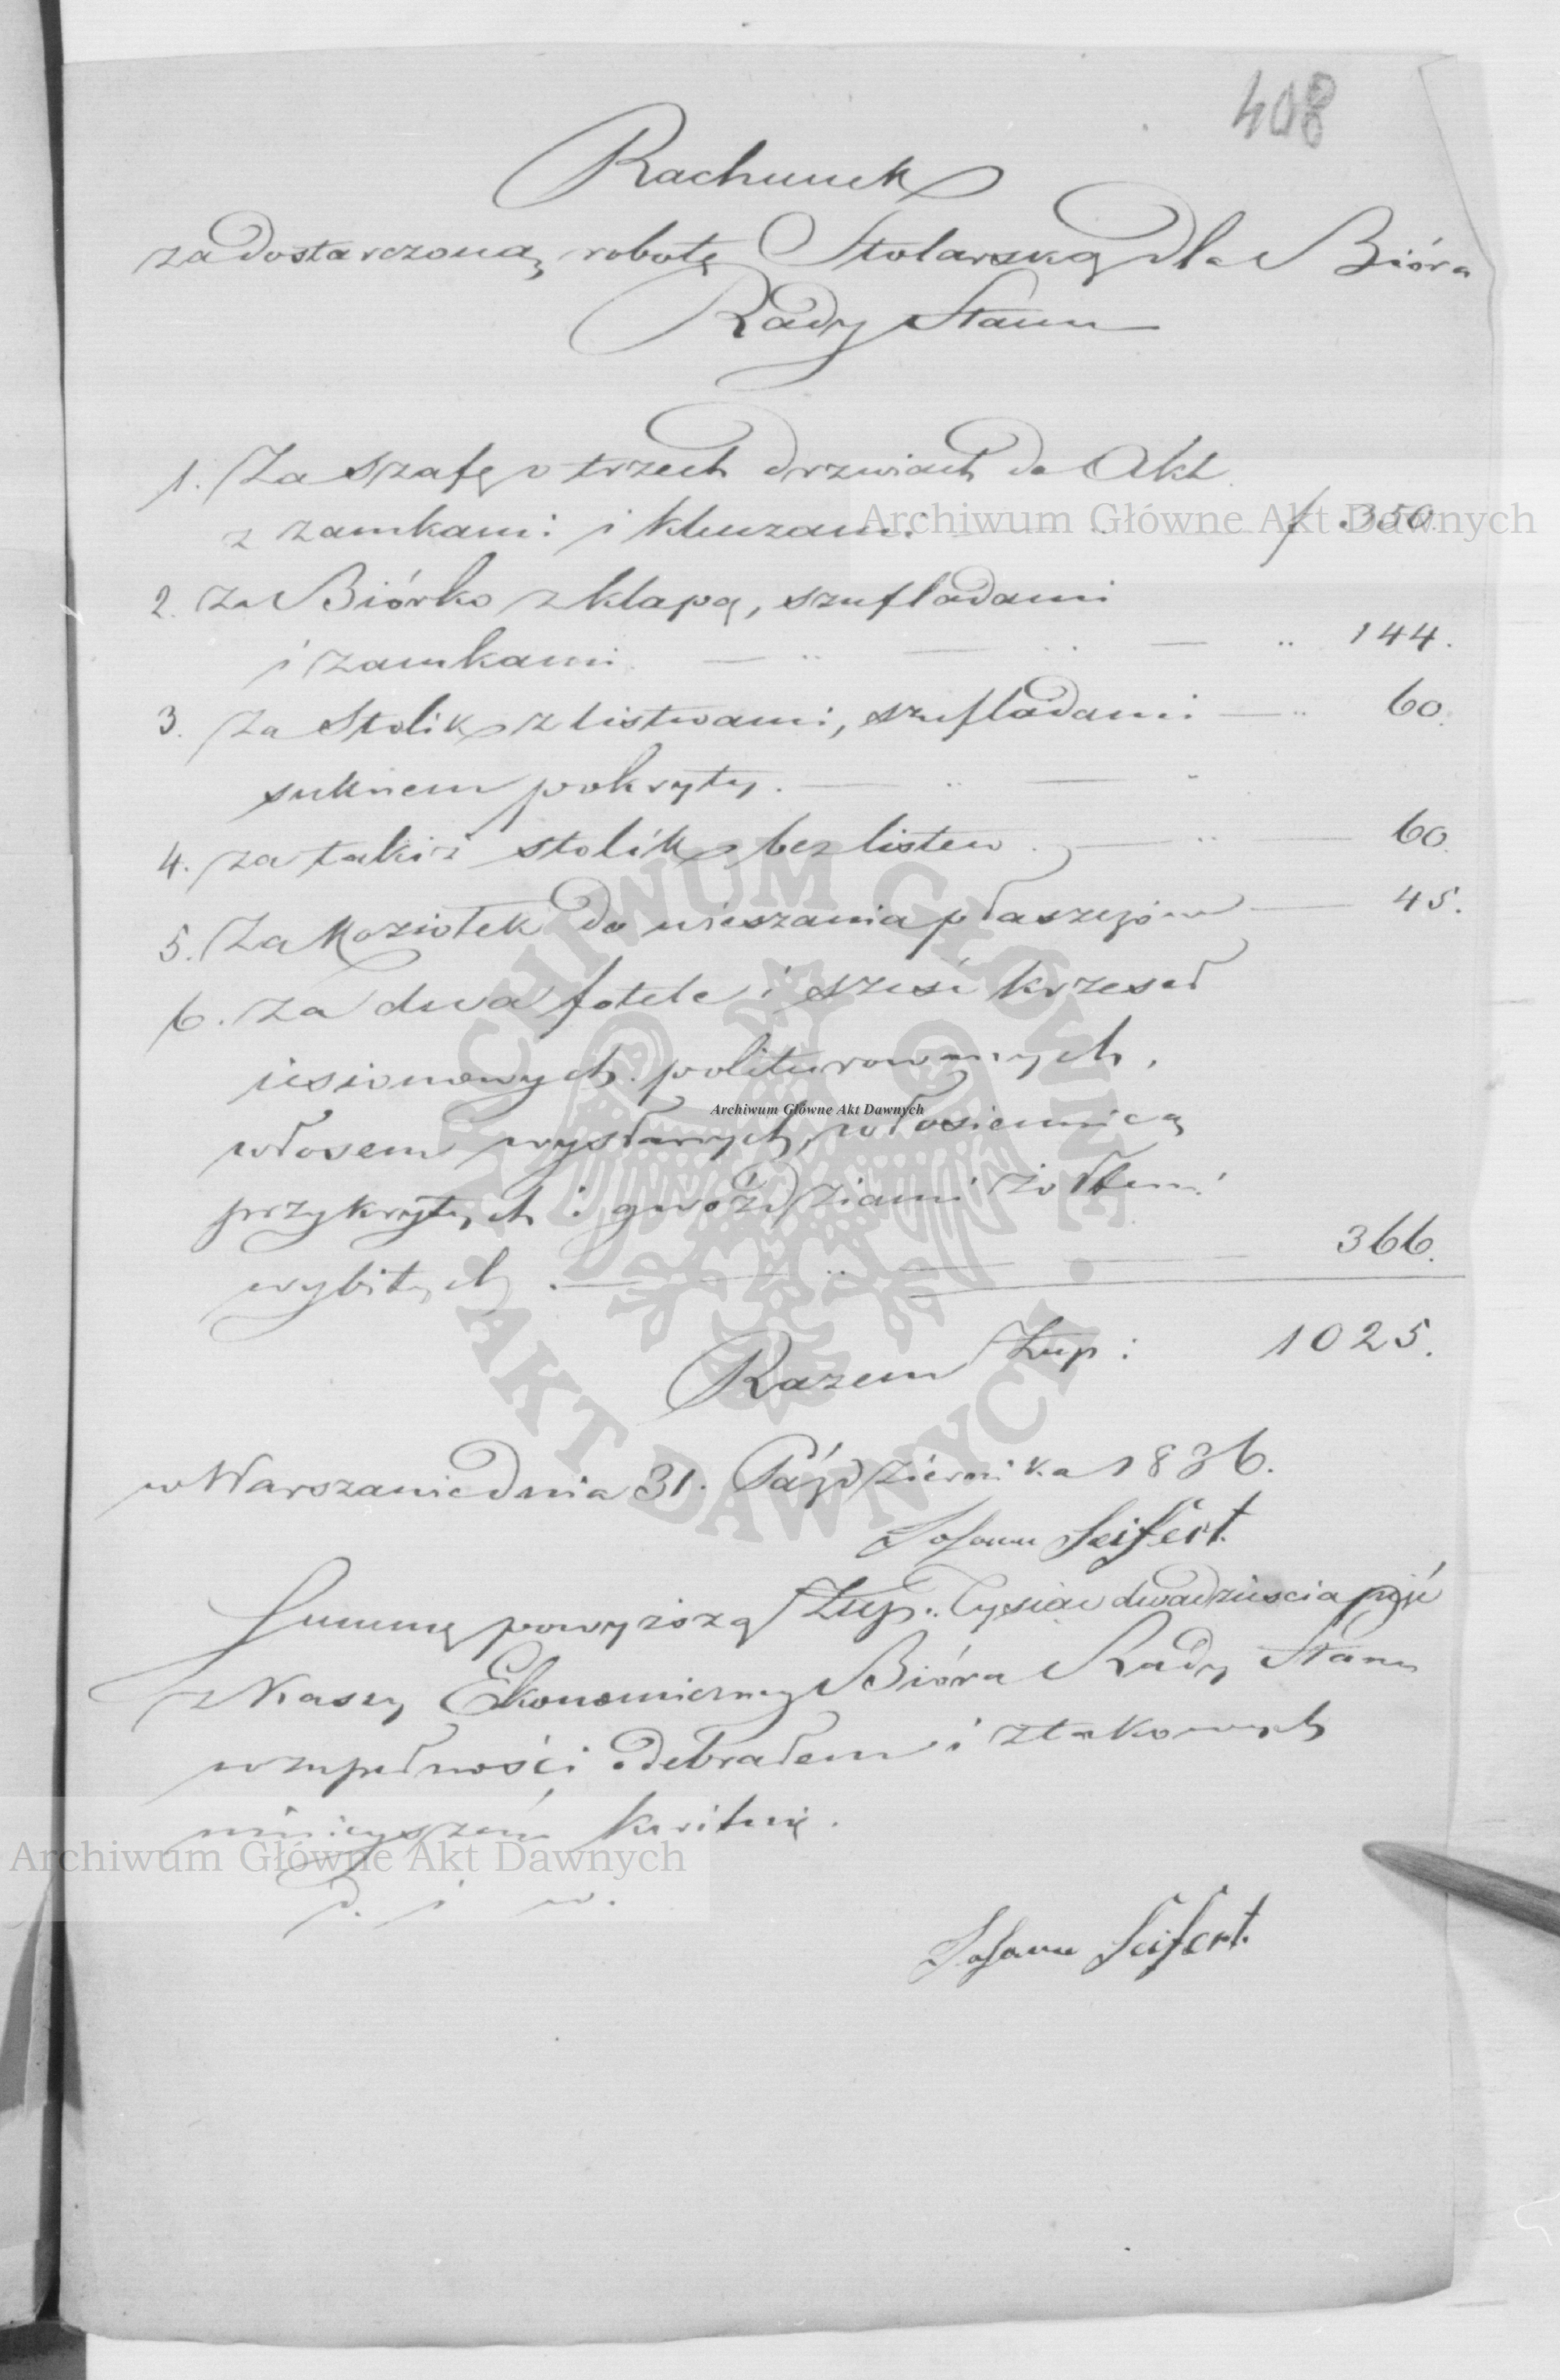 408
Rachunek
za dostarczoną robotę Stolarską dla Bióra
Rady Stanu
1. Za szafę o trzech drzwiach do Akt
z zamkami i kluczami f 350.
2. za Biórko z klapą, szufladami
i zamkami 144.
3. za Stolik z listwami, szufladami 60.
suknem pokryty.
4. za takiż stolik bez listew 60.
5. Za Koziołek do wieszania płaszczów 45.
6. za dwa fotele i sześć krzeseł
iesionowych politurowanych,
włosem wysłanych, włosiennicą
przykrytych i gwoździami żółtemi
wybitych. 366.
Razem Złp: 1025.
w Warszawie dnia 31. Października 1836.
Johann Seifert.
Summę powyższą Złp: Tysiąc dwadzieścia pięć
z Kassy Ekonomiczney Bióra Rady Stanu
w zupełności odebrałem i z takowych
ninieyszem kwituię.
D. j w.
Johann Seifert.
Archiwum Główne Akt Dawnych
ARCHIWUM GŁÓWNE AKT DAWNYCH
Archiwum Główne Akt Dawnych
Archiwum Główne Akt Dawnych